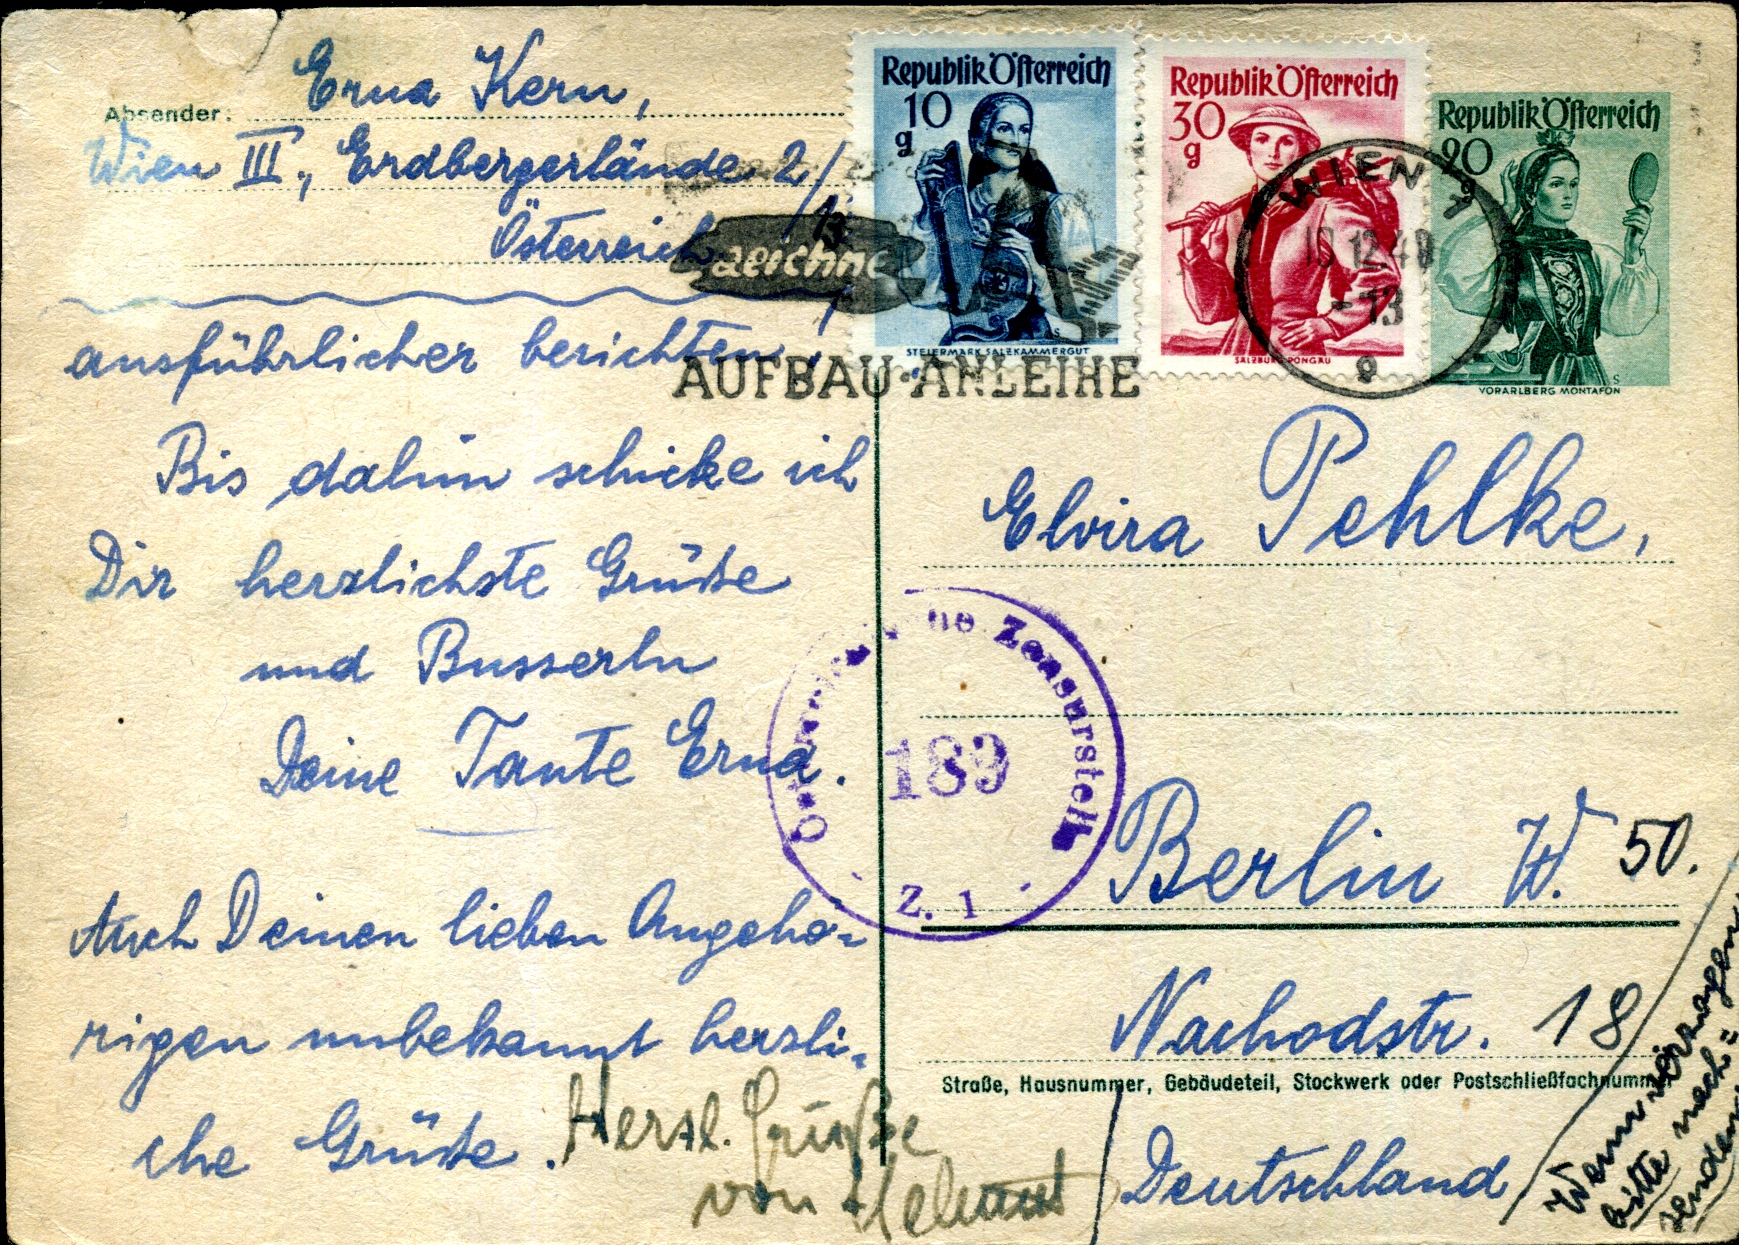 Absender: Erna Kern,
Wien III., Erdbergerlände 2/
13
Österreich
ausführlicher berichten,
Bis dahin schicke ich
Dir herzlichste Grüße
und Busserln
Deine Tante Erna.
Auch Deinen lieben Angehö=
rigen unbekannt herzli=
che Grüße.
Herzl. Grüße
von Helmut
Republik Österreich
10 g
STEIERMARK SALZKAMMERGUT
Republik Österreich
30 g
SALZBURG PONGAU
Republik Österreich
20
VORARLBERG MONTAFON
zeichne
AUFBAU-ANLEIHE
WIEN 1
10 12.49
-13
9
Elvira Pehlke,
Zensurstelle
189
Z. 1
Berlin W. 50.
Nachodstr. 18
Straße, Hausnummer, Gebäudeteil, Stockwerk oder Postschließfachnummer
Deutschland
Wenn verzogen
bitte nach=
senden